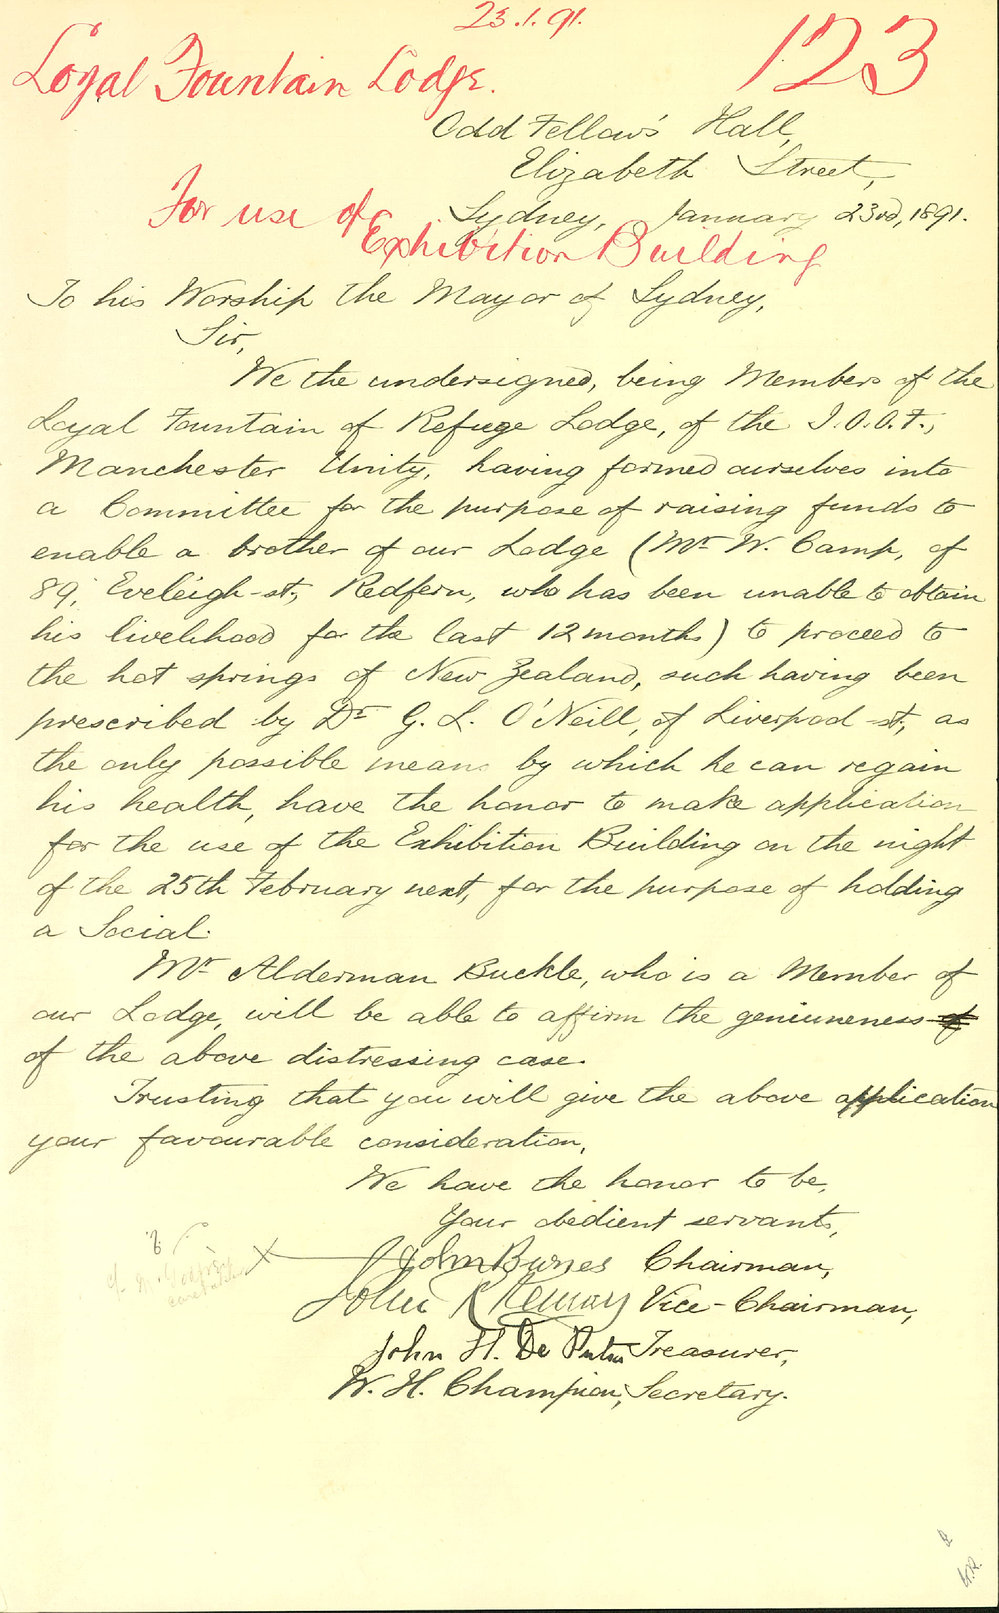 23.1.91.
123
Loyal Fountain Lodge.
Odd Fellows' Hall,
Elizabeth Street,
For use of
Sydney, January 23rd, 1891.
Exhibition Building
To his Worship the Mayor of Sydney,
Sir,
We the undersigned, being Members of the
Loyal Fountain of Refuge Lodge, of the I.O.O.F.,
Manchester Unity, having formed ourselves into
a Committee for the purpose of raising funds to
enable a brother of our Lodge (Mr W. Camp, of
89, Eveleigh-st., Redfern, who has been unable to obtain
his livelihood for the last 12 months) to proceed to
the hot springs of New Zealand, such having been
prescribed by Dr G. L. O'Neill, of Liverpool-st., as
the only possible means by which he can regain
his health, have the honor to make application
for the use of the Exhibition Building on the night
of the 25th February next, for the purpose of holding
a Social.
Mr Alderman Buckle, who is a Member of
our Lodge, will be able to affirm the geniuneness of
of the above distressing case.
Trusting that you will give the above application
your favourable consideration,
We have the honor to be,
Your obedient servants,
John Chairman,
John Vice-Chairman,
John H. De Treasurer,
W. H. Champion, Secretary.